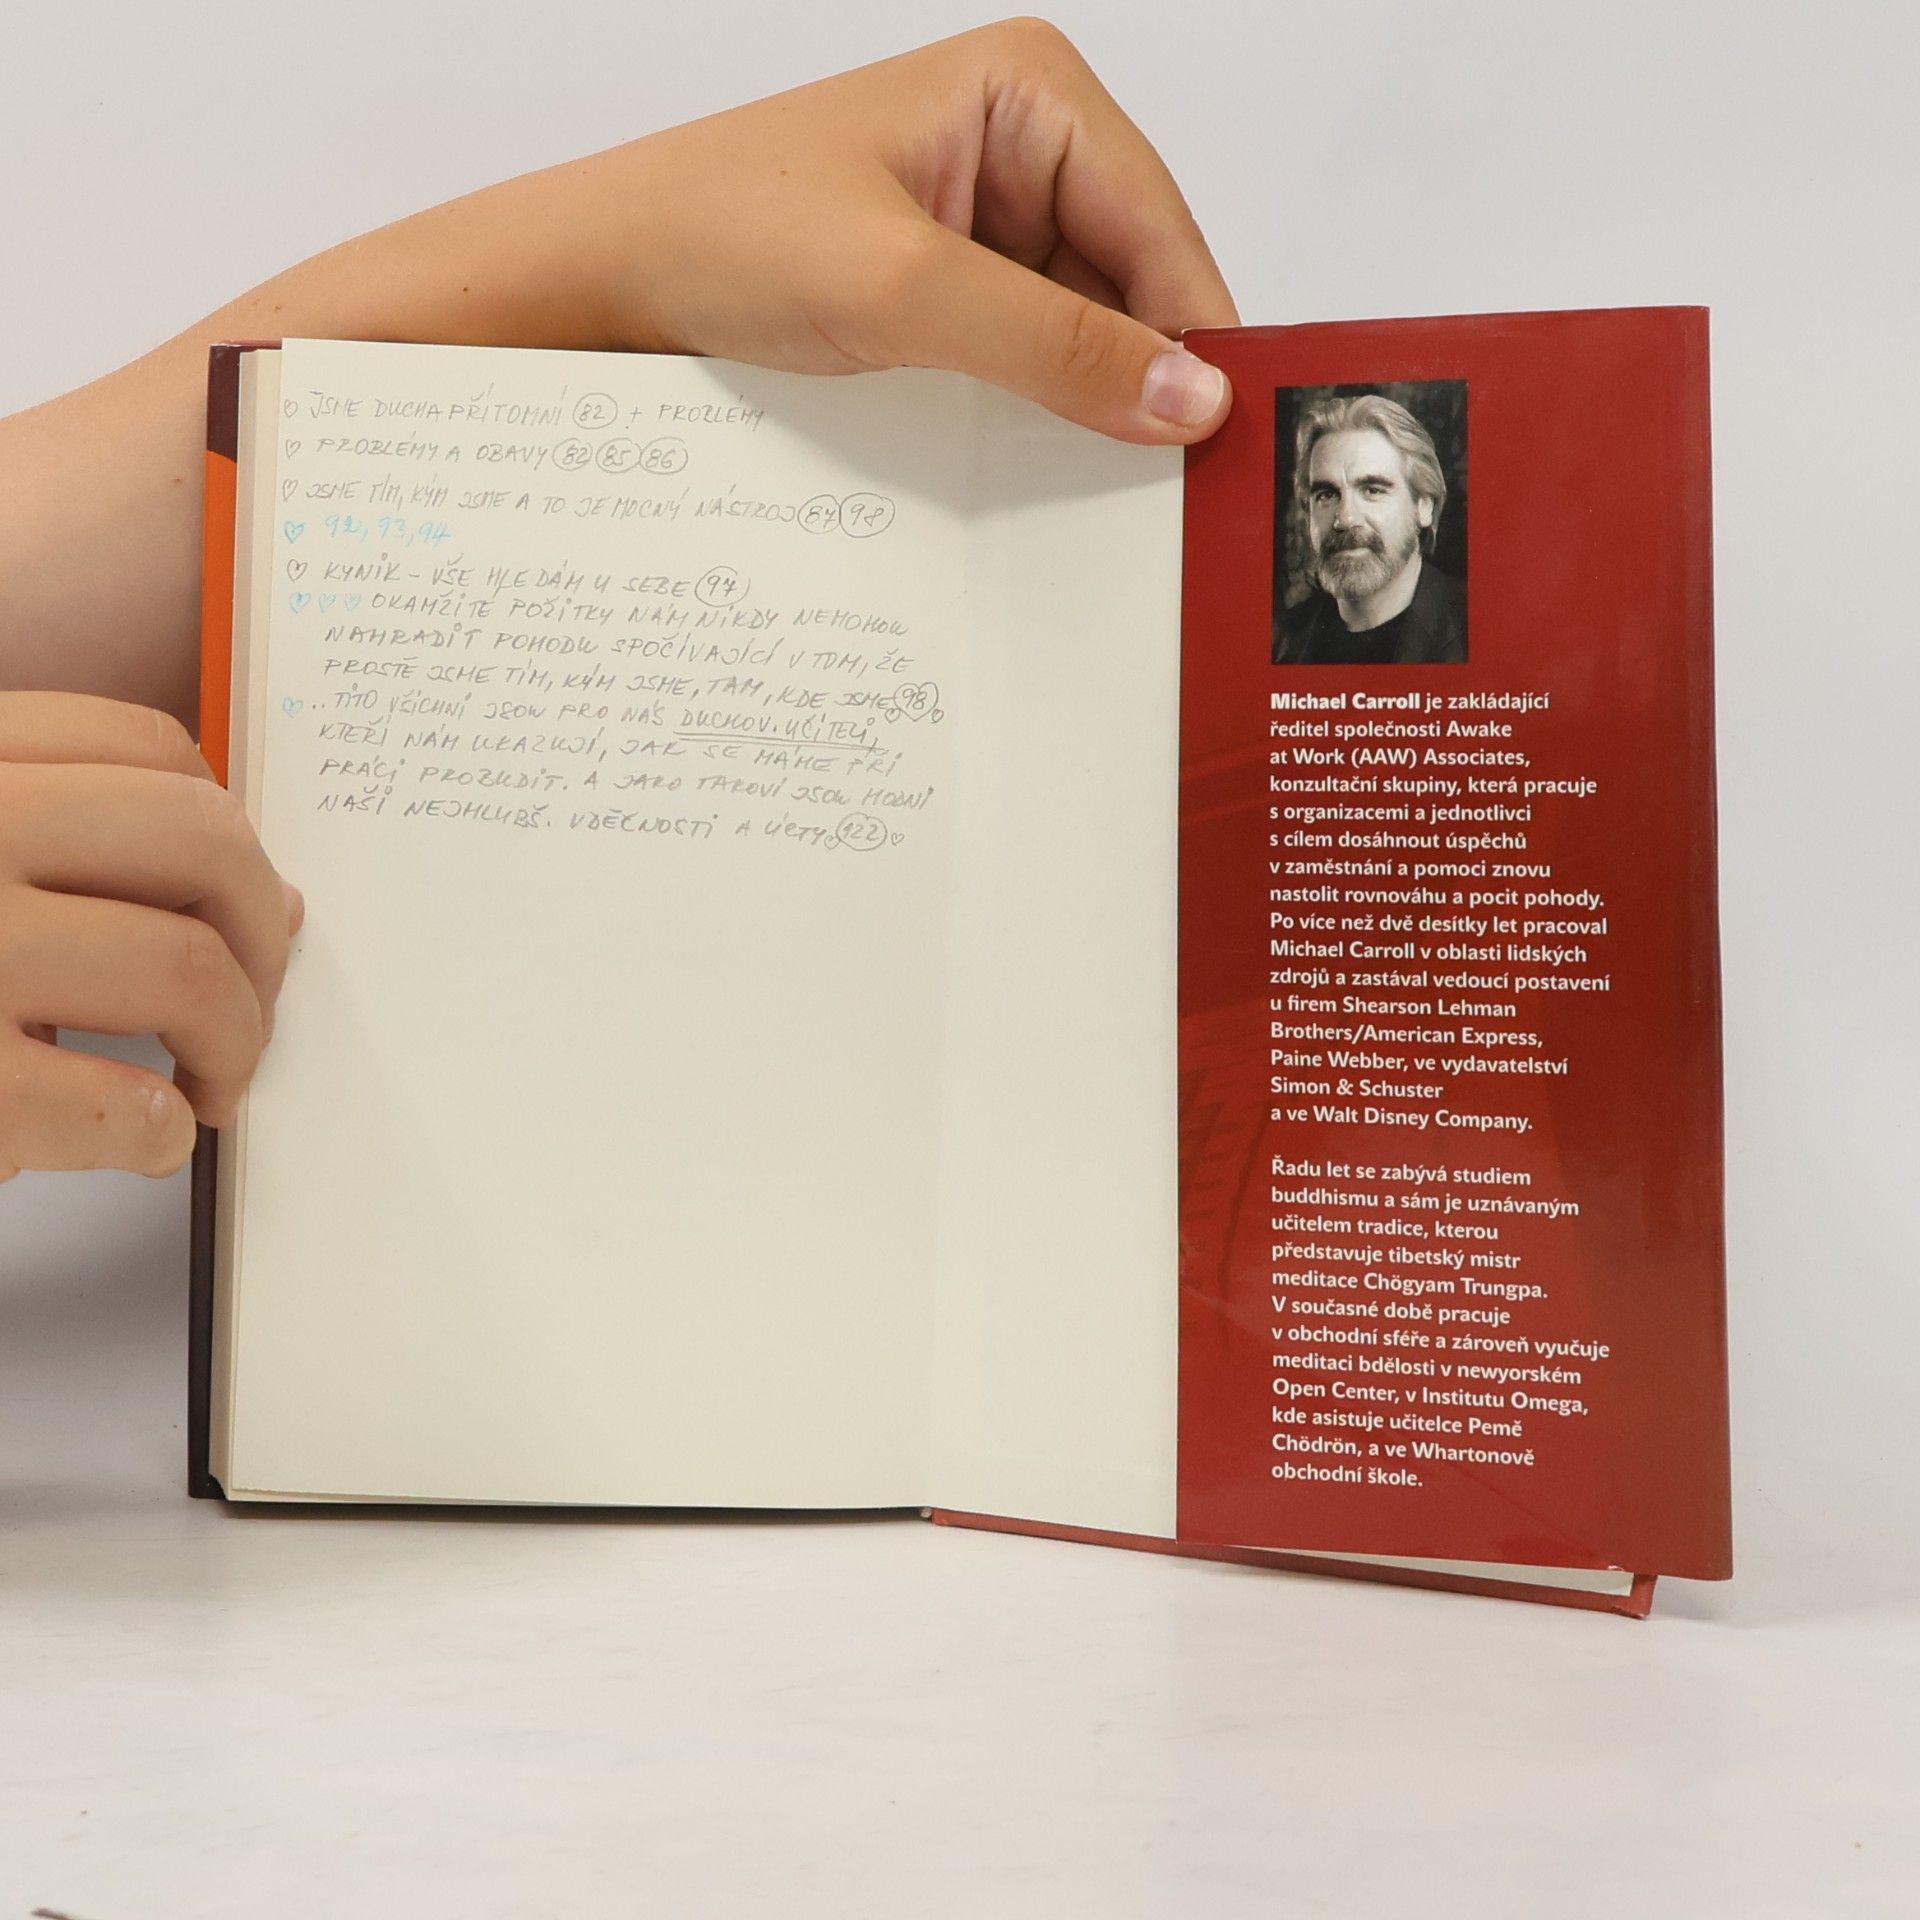 ♡ JSME DUCHAPŘÍTOMNÍ 82 + PROBLÉMY
♡ PROBLÉMY A OBAVY 82 85 86
♡ JSME TÍM, KÝM JSME A TO JE MOCNÝ NÁSTROJ 87 98
♡ 92, 93, 94
♡ KYNIK - VŠE HLEDÁM U SEBE 97
♡♡♡ OKAMŽITÉ POŽITKY NÁM NIKDY NEMOHOU
NAHRADIT POHODU SPOČÍVAJÍCÍ V TOM, ŽE
PROSTĚ JSME TÍM, KÝM JSME, TAM, KDE JSME 98
♡ .. TITO VŠICHNI JSOU PRO NÁS DUCHOV. UČITELI,
KTEŘÍ NÁM UKAZUJÍ, JAK SE MÁME PŘI
PRÁCI PROBUDIT. A JAKO TAKOVÍ JSOU HODNI
NAŠÍ NEJHLUBŠ. VDĚČNOSTI A ÚCTY 122 ♡
Michael Carroll je zakládající
ředitel společnosti Awake
at Work (AAW) Associates,
konzultační skupiny, která pracuje
s organizacemi a jednotlivci
s cílem dosáhnout úspěchů
v zaměstnání a pomoci znovu
nastolit rovnováhu a pocit pohody.
Po více než dvě desítky let pracoval
Michael Carroll v oblasti lidských
zdrojů a zastával vedoucí postavení
u firem Shearson Lehman
Brothers/American Express,
Paine Webber, ve vydavatelství
Simon & Schuster
a ve Walt Disney Company.
Řadu let se zabývá studiem
buddhismu a sám je uznávaným
učitelem tradice, kterou
představuje tibetský mistr
meditace Chögyam Trungpa.
V současné době pracuje
v obchodní sféře a zároveň vyučuje
meditaci bdělosti v newyorském
Open Center, v Institutu Omega,
kde asistuje učitelce Pemě
Chödrön, a ve Whartonově
obchodní škole.